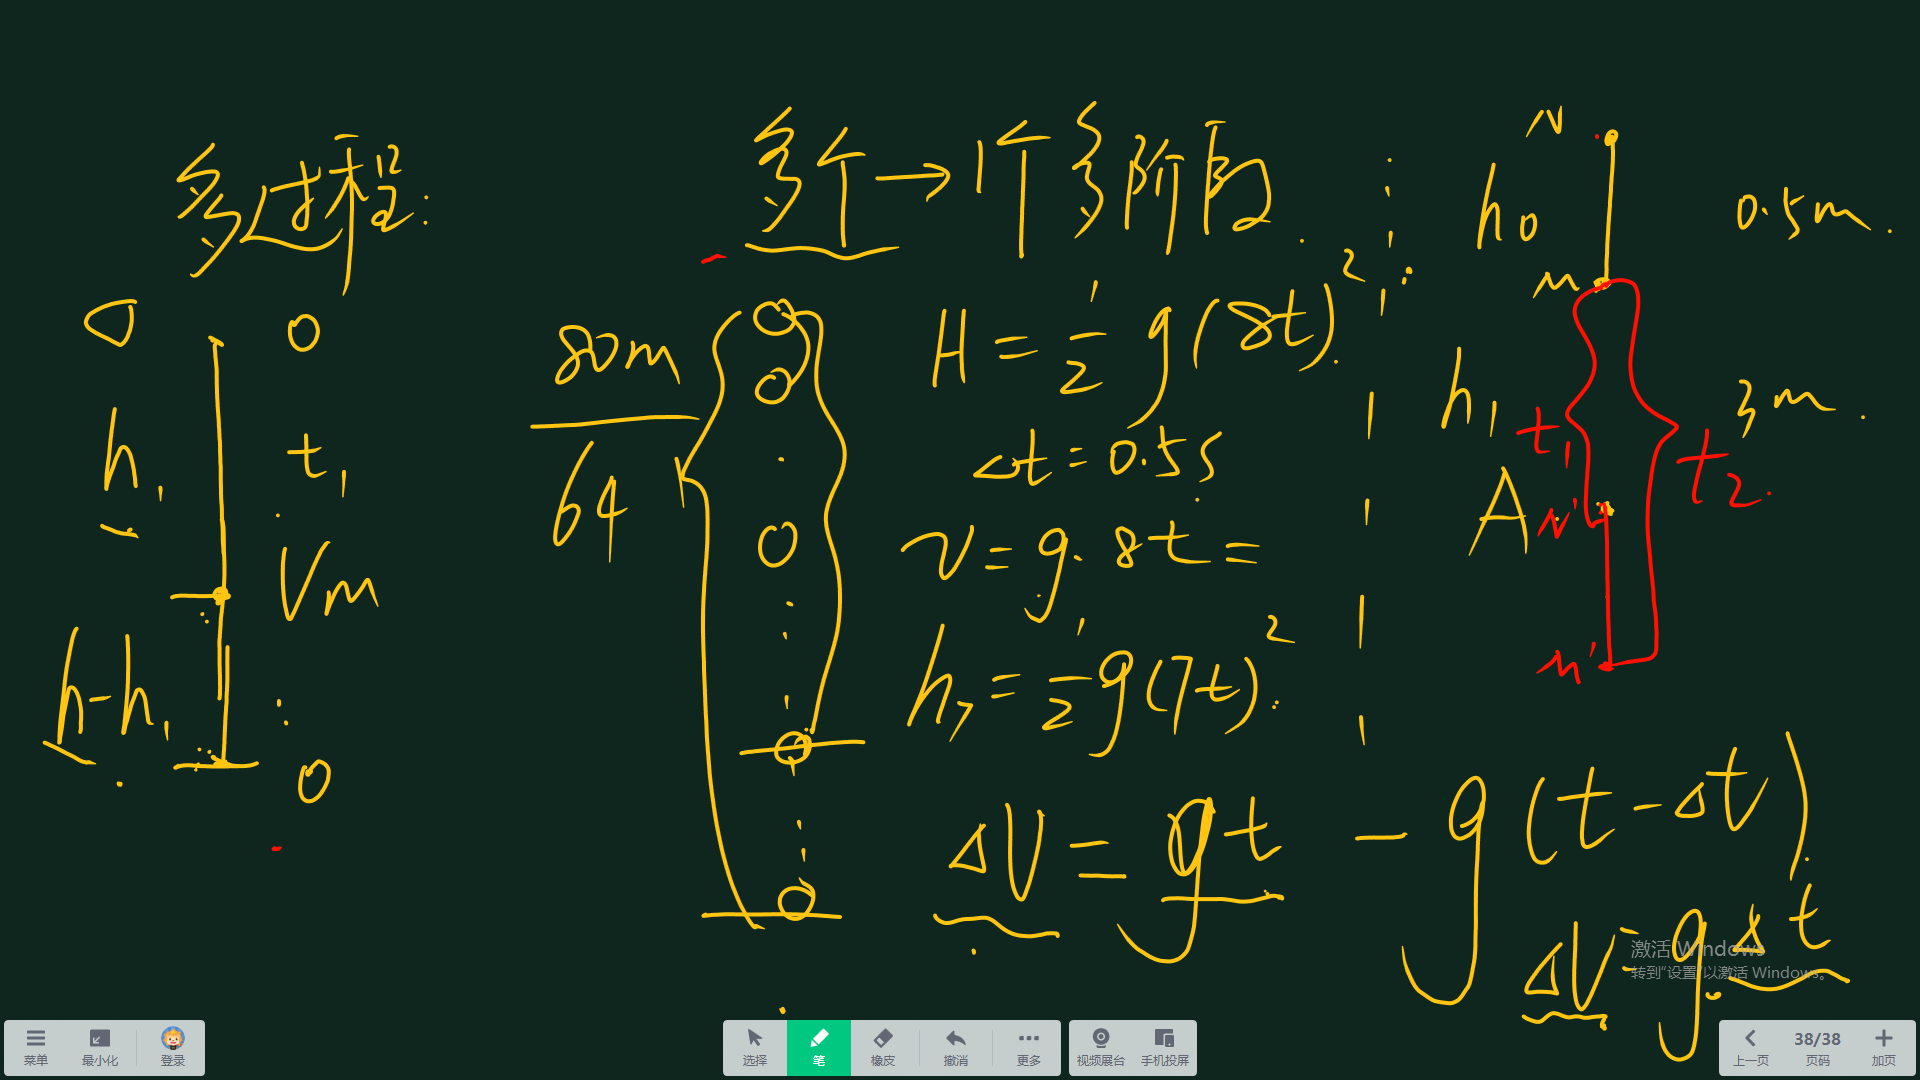 多过程:
0
h₁
t₁
Vm
h-h₁
0
多个→1个多阶段.
80m
64
H=1/2 g(8t)².
Δt=0.5s
v=g·8t=
h₇=1/2 g(7t)².
ΔV=gt-g(t-Δt)
ΔV=g·Δt
N
h₀
0.5m.
M
h₁
3m.
t₁
t₂.
A
N'
M'
激活 Windows
转到“设置”以激活 Windows。
菜单
最小化
登录
选择
笔
橡皮
撤消
更多
视频展台
手机投屏
上一页
38/38
页码
加页